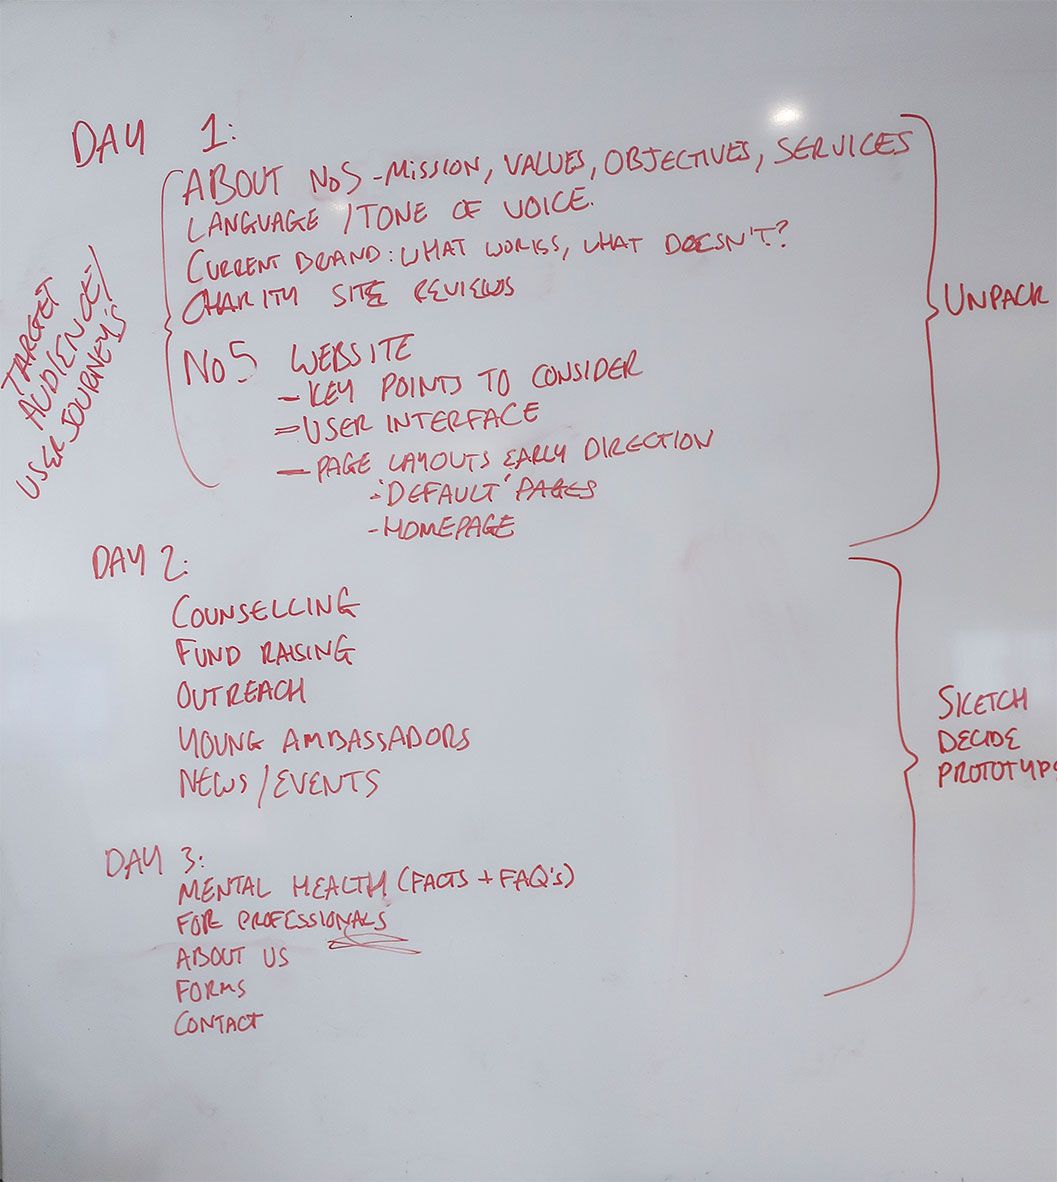 DAY 1:
ABOUT No5 - MISSION, VALUES, OBJECTIVES, SERVICES
LANGUAGE / TONE OF VOICE.
CURRENT BRAND: WHAT WORKS, WHAT DOESN'T?
CHARITY SITE REVIEWS
No5 WEBSITE
- KEY POINTS TO CONSIDER
- USER INTERFACE
- PAGE LAYOUTS EARLY DIRECTION
- 'DEFAULT' PAGES
- HOMEPAGE
TARGET
AUDIENCE/
USER JOURNEY'S
UNPACK
DAY 2:
COUNSELLING
FUND RAISING
OUTREACH
YOUNG AMBASSADORS
NEWS / EVENTS
DAY 3:
MENTAL HEALTH (FACTS + FAQ's)
FOR PROFESSIONALS
ABOUT US
FORMS
CONTACT
SKETCH
DECIDE
PROTOTYPE